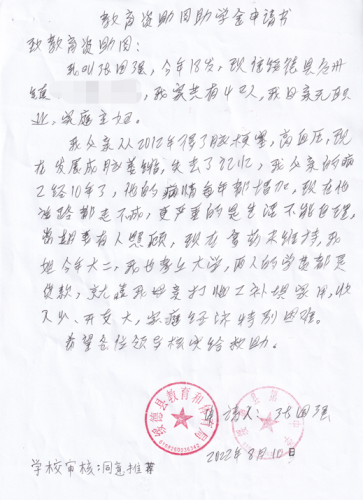 教育资助团助学金申请书
致教育资助团:
我叫张国强,今年18岁,现住镇
,我家共有4口人,我母亲无职
业,家庭主妇。
我父亲从2012年得了脑梗塞,高血压,现
在发展成脑萎缩,失去了记忆,我父亲的病
已经10年了,他的病情每年都增加,现在他
路都走不成,更严重的是生活不能自理,
常期要有人照顾,现在靠药来维持,我
姐今年大二,我也考上大学,两人的学费都是
贷款,就靠我母亲打临工补填家用,收
入少、开支大,家庭经济特别困难。
希望各位领导核实给救助。
申请人:张国强
2022年8月10日
县教育和体育局
学校审核:同意推荐